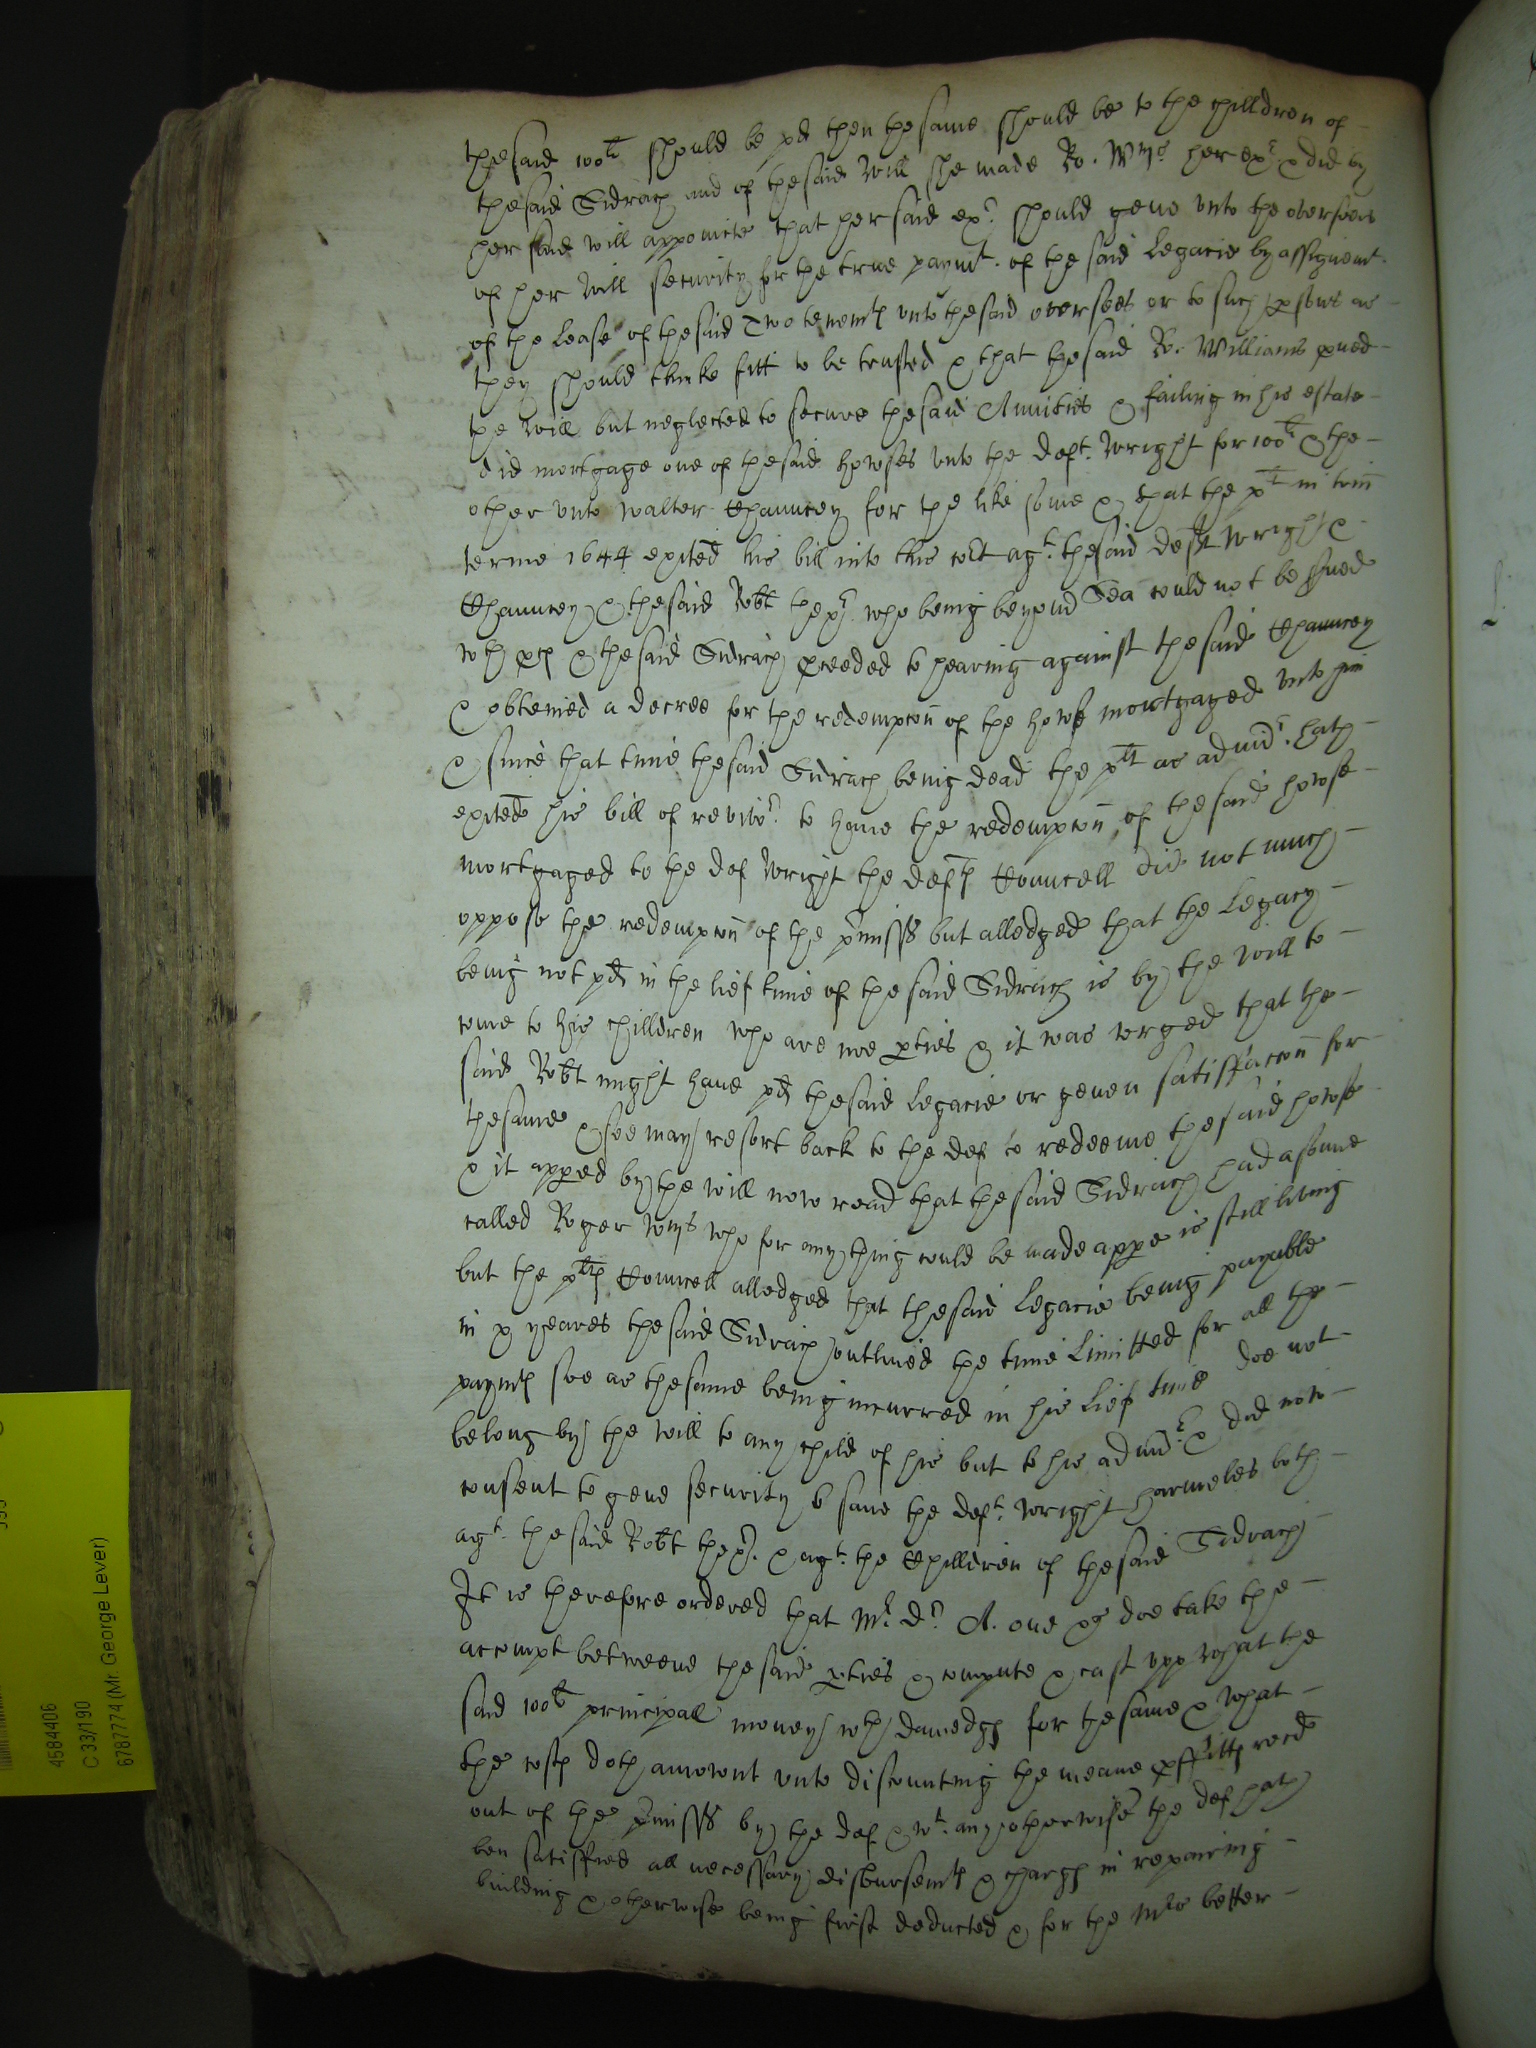 the said 100li should be pd then the same should be to the chilldren of
the said Sidrach and of the said Will she made Ro. Wms her exr & did by
her said will appointe that her said exr should geve unto the overseers
of her Will security for the true paymt. of the said Legacie by assignemt.
of the Lease of the said Two tenemts unto the said overseers or to such psons as
they should thinke fitt to be trusted & that the said Ro. Williams pved
the Will but neglected to secure the said Anuities & failing in his estate
did mortgage one of the said howses unto the deft. Wright for 100li & the
other unto Walter Chauncey for the like some & that the plt in trin
terme 1644 exited his bill into this cort agt. the said deft Wright &
Chauncey & the said Robt the exr. who being beyond Sea could not be sued
wth pcs & the said Sidrach pceeded to hearing against the said Chauncey
& obteined a decree for the redempcon of the howse mortgaged unto him
& since that time the said Sidrach being dead the plt as admr. hath
exited his bill of revivor to have the redempcon of the said howse
mortgaged to the def Wright the defts Councell did not much
oppose the redempcon of the pmisss but alledged that the Legacy
being not pd in the lief time of the said Sidrach is by the will to
come to his chilldren who are noe pties & it was urged that the
said Robt might have pd the said Legacie or geven satisfaccon for
the same & soe may resort back to the def to redeeme the said howse
& it apped by the will now read that the said Sidrach had a sonne
called Roger Wms who for any thing could be made appe is still living
but the plts Councell alledged that the said Legacie being payable
in x yeares the said Sidrach outlived the time Limitted for all the
paymts soe as the same being incurred in his Lief time doe not
belong by the will to any child of his but to his admr. & did now
consent to geve security to save the deft. Wright harmeles both
agt. the said Robt the exr. & agt. the Chilldren of the said Sidrach
It is therefore ordered that Mr. Dr. A. one &c doe take the
accompt betweene the said pties & compute & cast upp what the
said 100li principall money wth damedgs for the same & what
the costs doth amownt unto discounting the meane pffitts recd
out of the pmisss by the def & wt. any otherwise the def hath
ben satisfied all necessary disbursemts & chargs in repaireing
building & otherwise being first deducted & for the Mrs better
4584406
C 33/190
6787774 (Mr. George Lever)